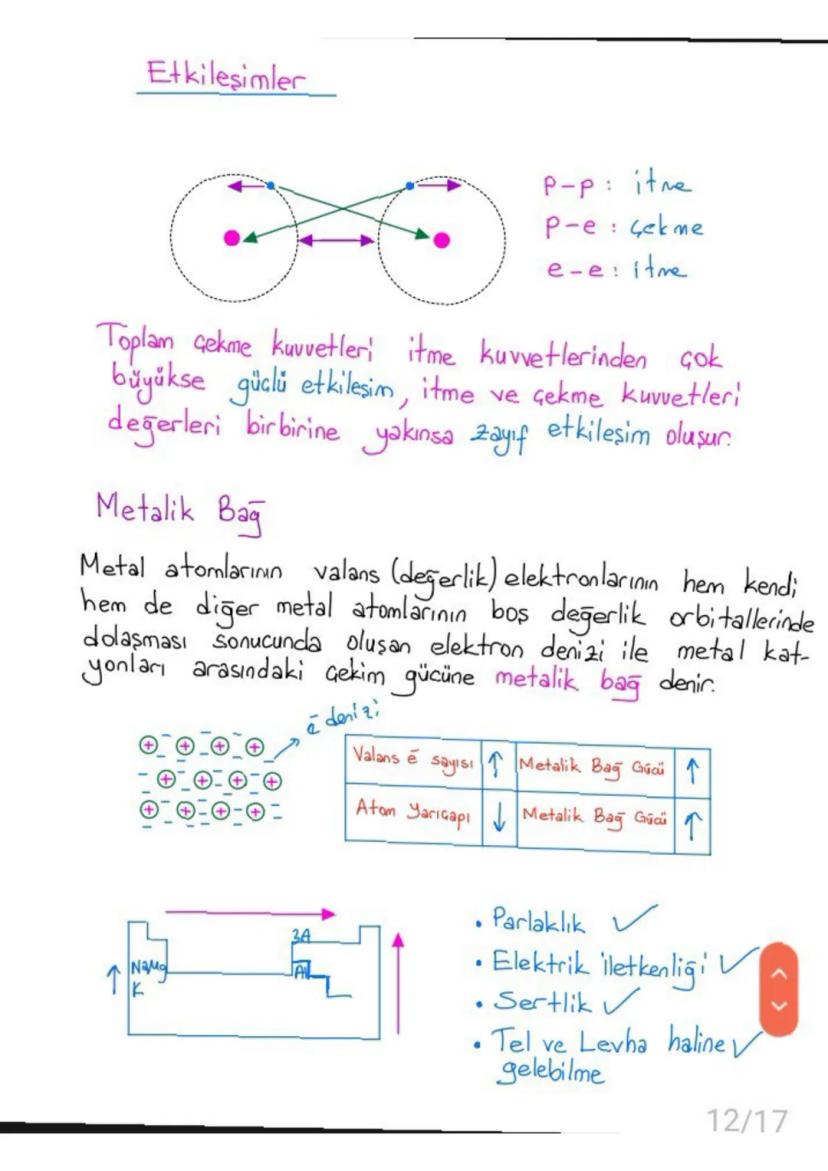 Etkileşimler
p-p : itme
p-e : çekme
e-e : itme
Toplam çekme kuvvetleri itme kuvvetlerinden çok
büyükse güçlü etkileşim, itme ve çekme kuvvetleri
değerleri birbirine yakınsa zayıf etkileşim oluşur.
Metalik Bağ
Metal atomlarının valans (değerlik) elektronlarının hem kendi
hem de diğer metal atomlarının boş değerlik orbitallerinde
dolaşması sonucunda oluşan elektron denizi ile metal kat-
yonları arasındaki çekim gücüne metalik bağ denir.
ē denizi
Valans ē sayısı ↑ Metalik Bağ Gücü ↑
Atom Yarıçapı ↓ Metalik Bağ Gücü ↑
3A
Na Mg Al
K
• Parlaklık ✓
• Elektrik iletkenliği ✓
• Sertlik ✓
• Tel ve Levha haline ✓
gelebilme
12/17